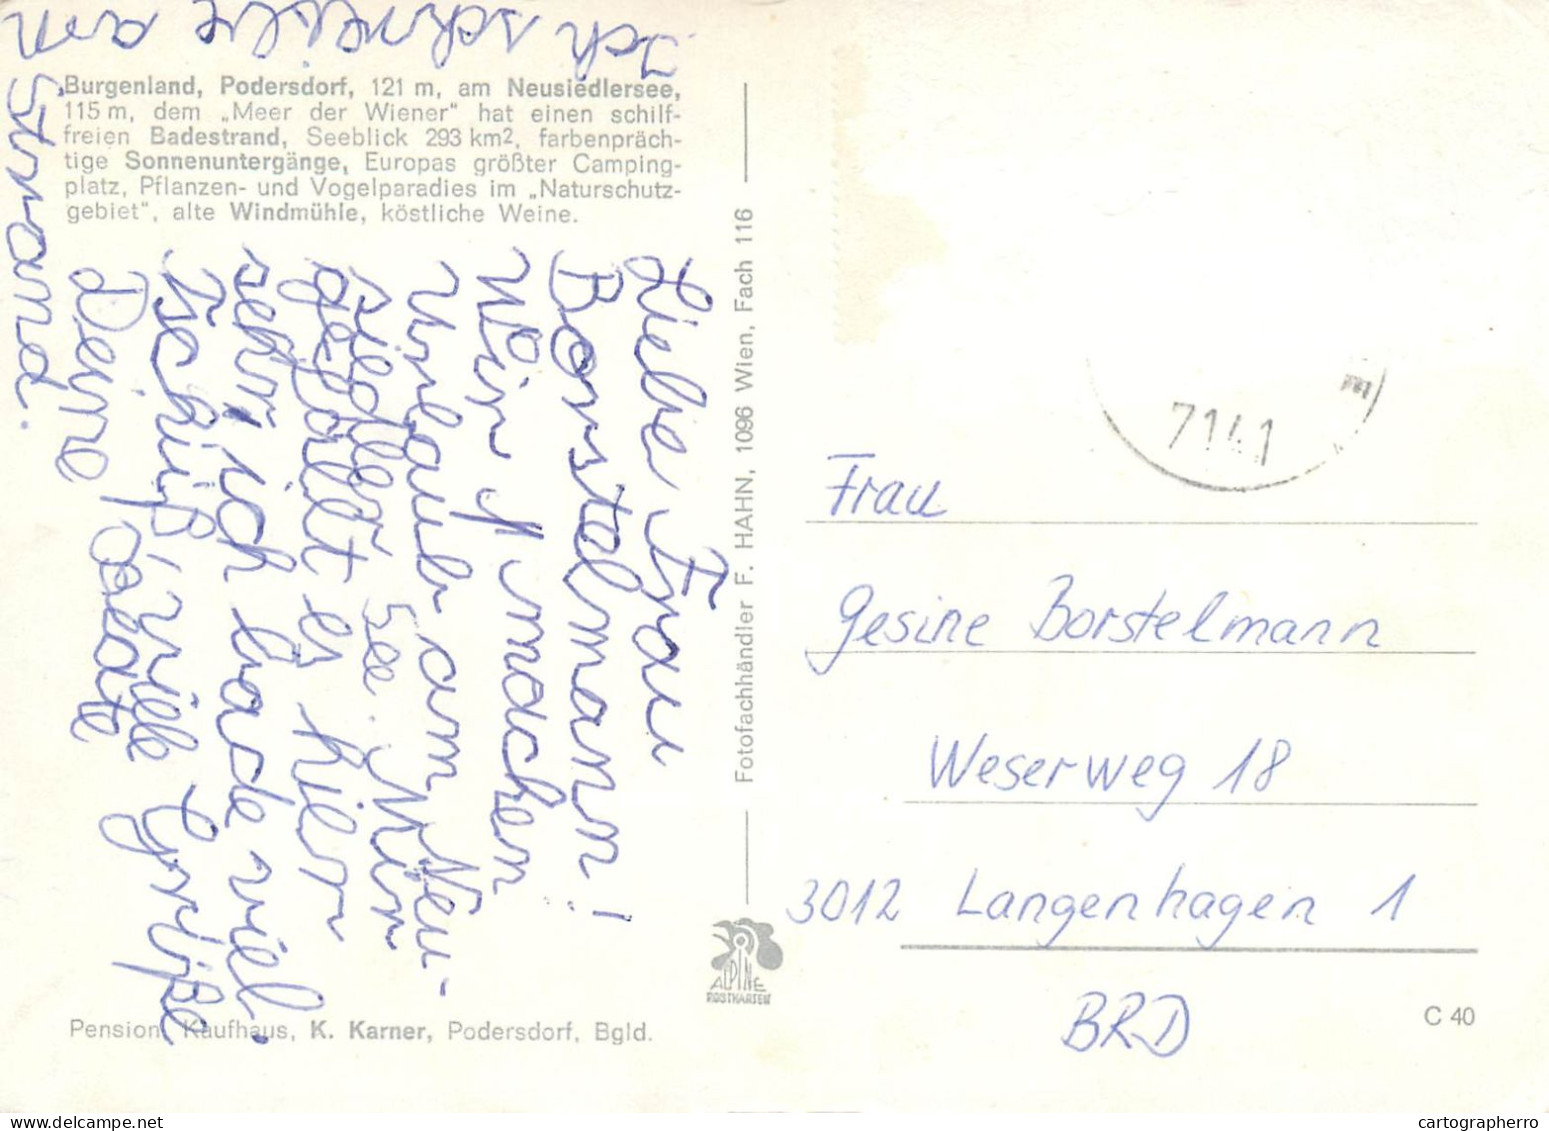 Burgenland, Podersdorf, 121 m, am Neusiedlersee,
115 m, dem „Meer der Wiener“ hat einen schilf-
freien Badestrand, Seeblick 293 km2, farbenpräch-
tige Sonnenuntergänge, Europas größter Camping-
platz, Pflanzen- und Vogelparadies im „Naturschutz-
gebiet“, alte Windmühle, köstliche Weine.
Liebe Frau
Borstelmann!
Wir machen
Urlaub am Neu-
siedler See. Mir
gefällt es hier
sehr, ich bade viel.
Tschüß, viele Grüße
Deine Beate
Ich schreibe am
Strand.
Pension, Kaufhaus, K. Karner, Podersdorf, Bgld.
Fotofachhändler F. HAHN, 1096 Wien, Fach 116
ALPINE
POSTKARTEN
7141
Frau
Gesine Borstelmann
Weserweg 18
3012 Langenhagen 1
BRD
C 40
cartographerro